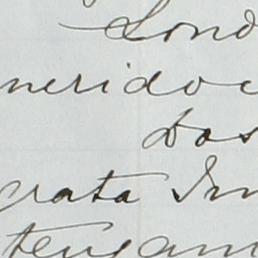 Lond
nerido e
Dos
grata Im
tengam